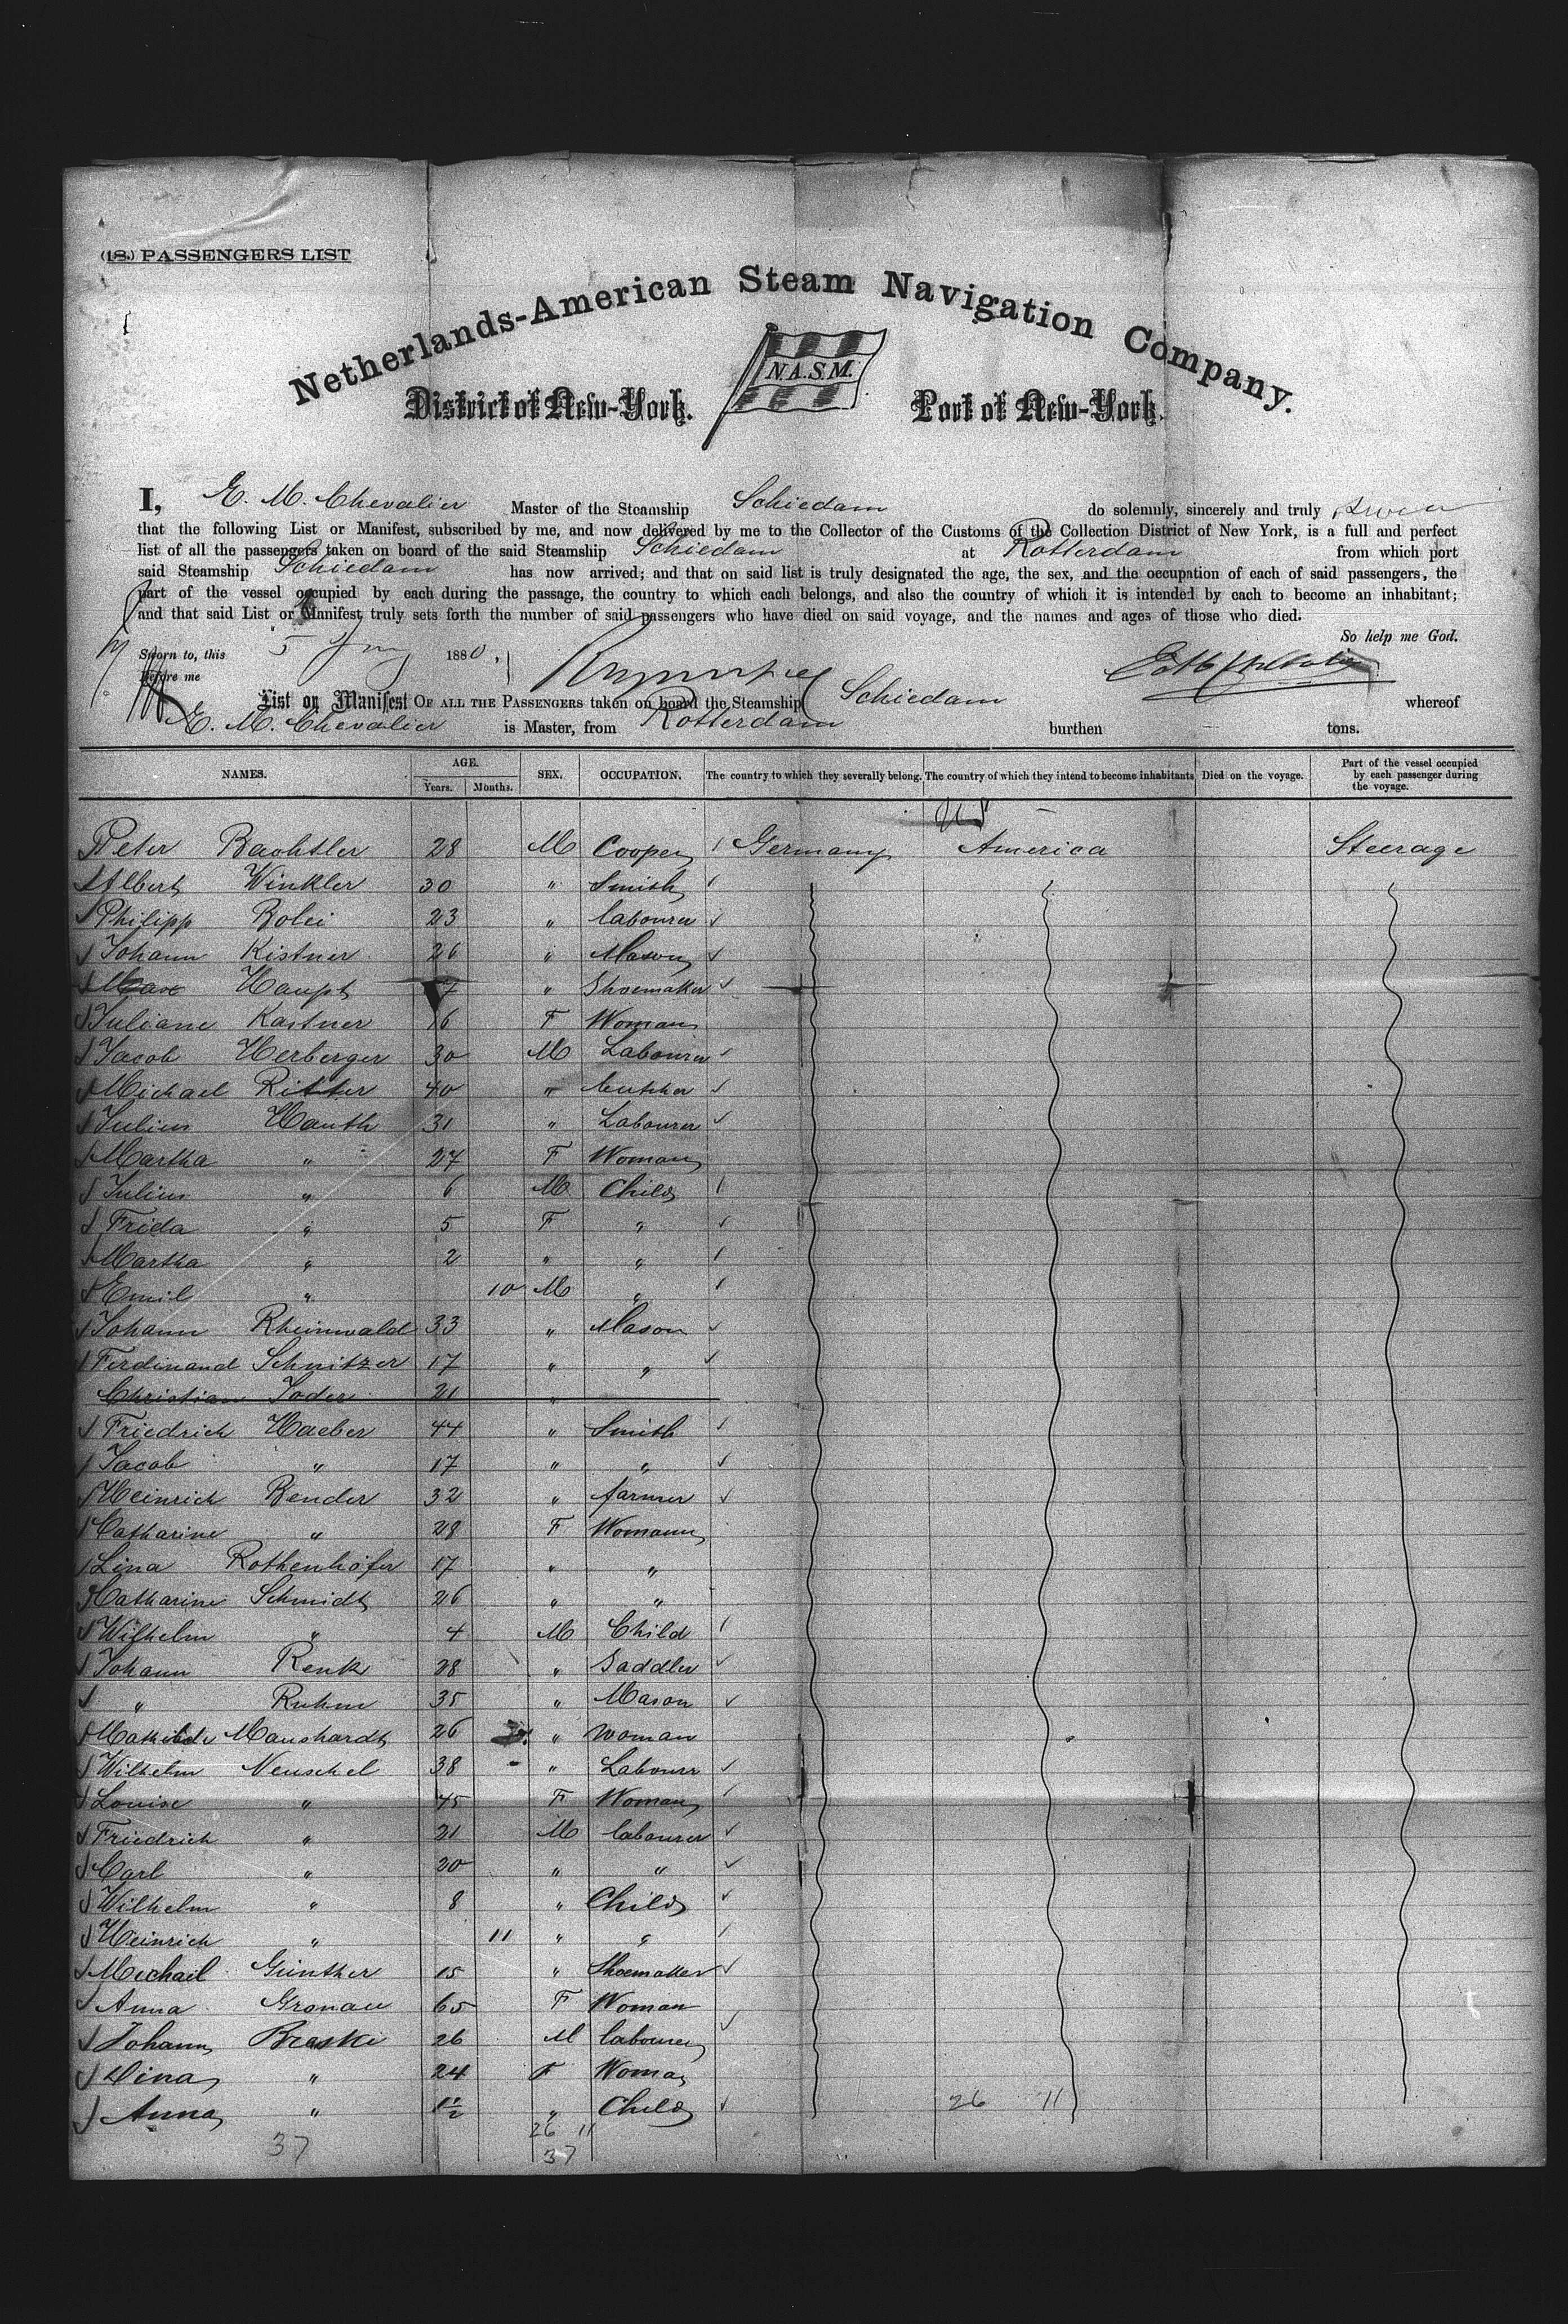 (18.) PASSENGERS LIST
Netherlands-American Steam Navigation Company.
N.A.S.M.
District of New-York. Port of New-York.
I, E. M. Chevalier Master of the Steamship Schiedam do solemnly, sincerely and truly swear
that the following List or Manifest, subscribed by me, and now delivered by me to the Collector of the Customs of the Collection District of New York, is a full and perfect
list of all the passengers taken on board of the said Steamship Schiedam at Rotterdam from which port
said Steamship Schiedam has now arrived; and that on said list is truly designated the age, the sex, and the occupation of each of said passengers, the
part of the vessel occupied by each during the passage, the country to which each belongs, and also the country of which it is intended by each to become an inhabitant;
and that said List or Manifest truly sets forth the number of said passengers who have died on said voyage, and the names and ages of those who died.
So help me God.
Sworn to, this 5 1880,
Before me
List or Manifest OF ALL THE PASSENGERS taken on board the Steamship Schiedam whereof
E. M. Chevalier is Master, from Rotterdam burthen tons.
NAMES. AGE. Years. Months. SEX. OCCUPATION. The country to which they severally belong. The country of which they intend to become inhabitants Died on the voyage. Part of the vessel occupied by each passenger during the voyage.
US
Peter Bachtler 28 M Cooper Germany America Steerage
Albert Winkler 30 " Smith
Philipp Bolei 23 " labourer
Johann Kistner 26 " Mason
Max Haupt 7 " Shoemaker
Juliane Kastner 16 F Woman
Jacob Herberger 30 M Labourer
Michael Ritter 40 " butcher
Julius Hauth 31 " Labourer
Martha " 27 F Woman
Julius " 6 M Child
Frida " 5 F "
Martha " 2 " "
Emil " 10 M "
Johann Rheinwald 33 " Mason
Ferdinand Schnitzer 17 " "
Christian Joder 21 "
Friedrich Haeber 44 " Smith
Jacob " 17 " "
Heinrich Bender 32 " farmer
Catharine " 28 F Womann
Lina Rothenhöfer 17 " "
Catharine Schmidt 26 " "
Wilhelm " 4 M Child
Johann Renk 28 " Saddler
" Ruhm 35 " Mason
Mathilde Manshardt 26 " woman
Wilhelm Neuschel 38 " Labourr
Louise " 45 F Woman
Friedrich " 21 M labourer
Carl " 20 " "
Wilhelm " 8 " Child
Heinrich " 11 " "
Michail Günther 15 " Shoemaker
Anna Gronau 65 F Woman
Johann Breski 26 M labourer
Dina " 24 F Woman
Anna " 1½ " Child 26 11
26 11
37 37